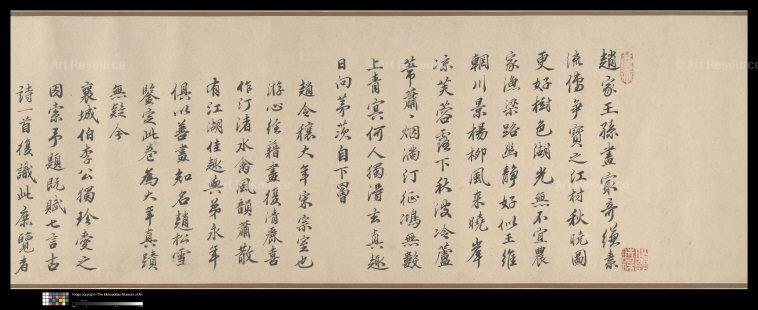 趙家王孫畫最奇縑素
流傳爭寶之江村秋曉圖
更好樹色湖光無不宜農
家漁梁路幽靜好似王維
輞川景楊柳風來曉岸
涼芙蓉露下秋波冷蘆
葦蕭〻烟滿汀征鴻無數
上青冥何人獨得玄真趣
日向茅茨自下罾
趙令穰大年宋宗室也
游心經籍畫復清麗喜
作汀渚水禽風韻蕭散
有江湖佳趣與弟永年
俱以善畫知名趙松雪
鑒定此卷為大年真蹟
無疑今
襄城伯李公獨珍愛之
因索予題既賦七言古
詩一首復識此庶覽者
© Art Resource
© Art Resource
© Art Resource
Image copyright The Metropolitan Museum of Art